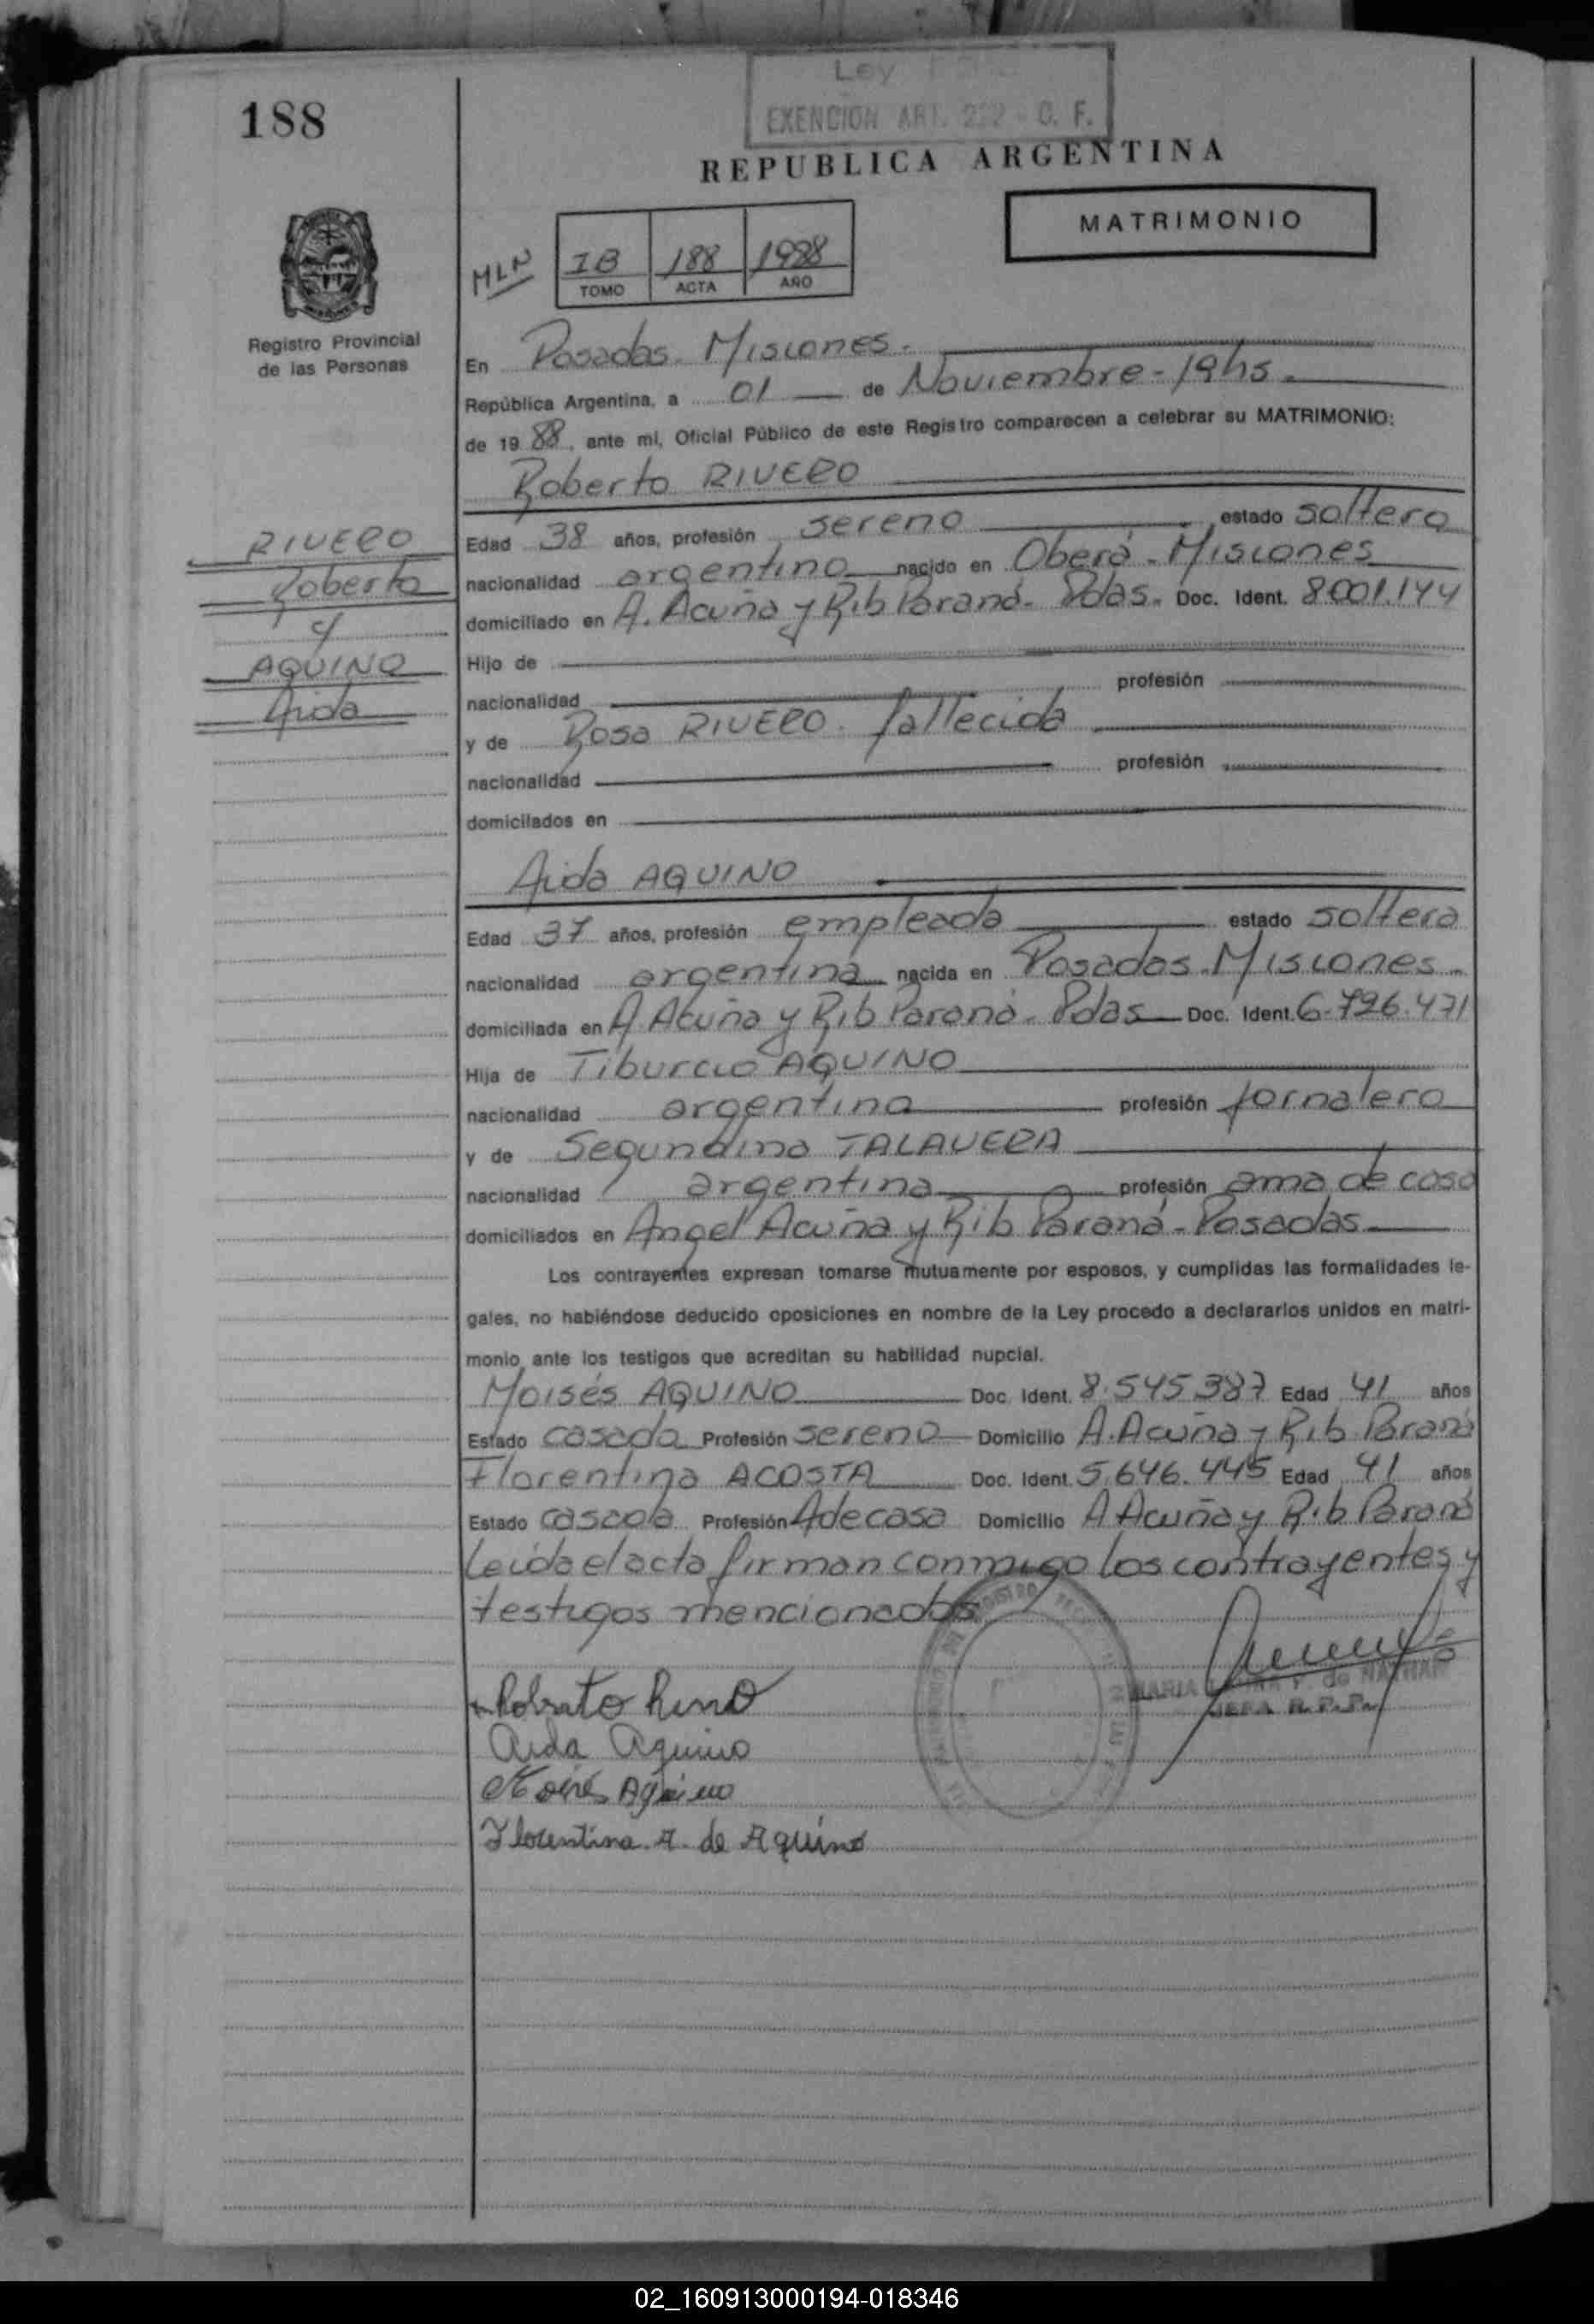 188
Ley
EXENCION ART. 222 - C. F.
REPUBLICA ARGENTINA
MATRIMONIO
MLN
IB 188 1988
TOMO ACTA AÑO
Registro Provincial
de las Personas
En Posadas. Misiones.
República Argentina, a 01 de Noviembre - 19hs.
de 19 88, ante mi, Oficial Público de este Registro comparecen a celebrar su MATRIMONIO:
Roberto RIVERO
RIVERO
Roberto
y
AQUINO
Aida
Edad 38 años, profesión sereno estado soltero
nacionalidad argentino nacido en Oberá - Misiones
domiciliado en A. Acuña y Rib Paraná - Pdas. Doc. Ident. 8.001.144
Hijo de
nacionalidad profesión
y de Rosa RIVERO. fallecida
nacionalidad profesión
domicilados en
Aida AQUINO
Edad 37 años, profesión empleada estado soltera
nacionalidad argentina nacida en Posadas. Misiones.
domiciliada en A. Acuña y Rib Paraná - Pdas Doc. Ident. 6.726.471
Hija de Tiburcio AQUINO
nacionalidad argentino profesión jornalero
y de Segundina TALAVERA
nacionalidad argentina profesión ama de casa
domiciliados en Angel Acuña y Rib Paraná - Posadas
Los contrayentes expresan tomarse mutuamente por esposos, y cumplidas las formalidades le-
gales, no habiéndose deducido oposiciones en nombre de la Ley procedo a declararlos unidos en matri-
monio ante los testigos que acreditan su habilidad nupcial.
Moisés AQUINO Doc. Ident. 8.545.387 Edad 41 años
Estado casado Profesión sereno Domicilio A. Acuña y Rib. Paraná
Florentina ACOSTA Doc. Ident. 5.646.445 Edad 41 años
Estado casada Profesión A de casa Domicilio A Acuña y Rib Paraná
Leída el acta firman conmigo los contrayentes y
testigos mencionados
MARIA de NATHAN
JEFA R. P. P.
Roberto Rivero
Aida Aquino
Moisés Aquino
Florentina A. de Aquino
02_160913000194-018346